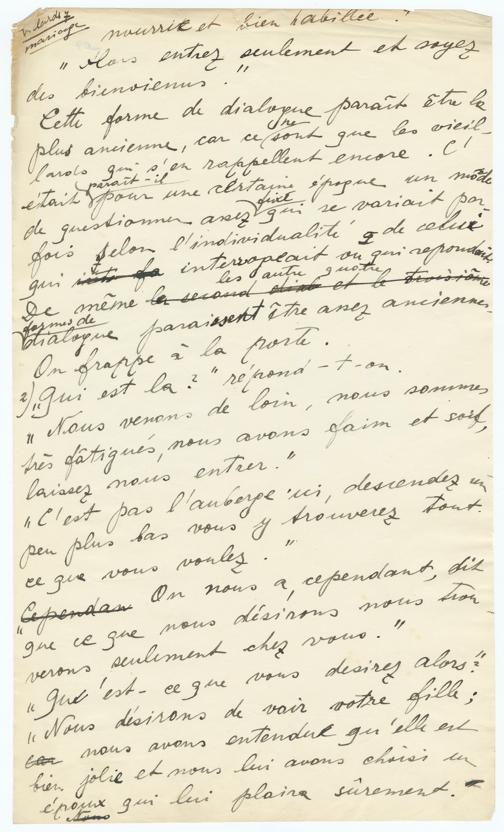 mariage
nourrie et bien habillée."
"Alors entrez seulement et soyez
des bienvienus."
Cette forme de dialogue paraît être la
plus ancienne, car ce ne sont que les vieil-
lards qui s'en rappellent encore. C'
était paraît-il pour une certaine époque un mode
de questionner assez fixe qui se variait par
fois selon l'individualité de celui
qui intervogeait ou qui repondait
De même les autre
formes de dialogue paraissent être assez anciennes.
On frappe à la porte.
2) "Qui est la?" répond-t-on.
"Nous venons de loin, nous sommes
très fâtigués, nous avons faim et soif,
laissez nous entrer."
"C'est pas l'auberge ici, descendez un
peu plus bas vous y trouverez tout
ce que vous voulez."
"Cependan On nous a, cependant, dit
que ce que nous désirons nous trou-
verons seulement chez vous."
"Qu'est-ce que vous desirez alors?"
"Nous désirons de voir votre fille;
car nous avons entendue qu'elle est
bien jolie et nous lui avons choisi un
époux qui lui plaira sûrement.
Nous